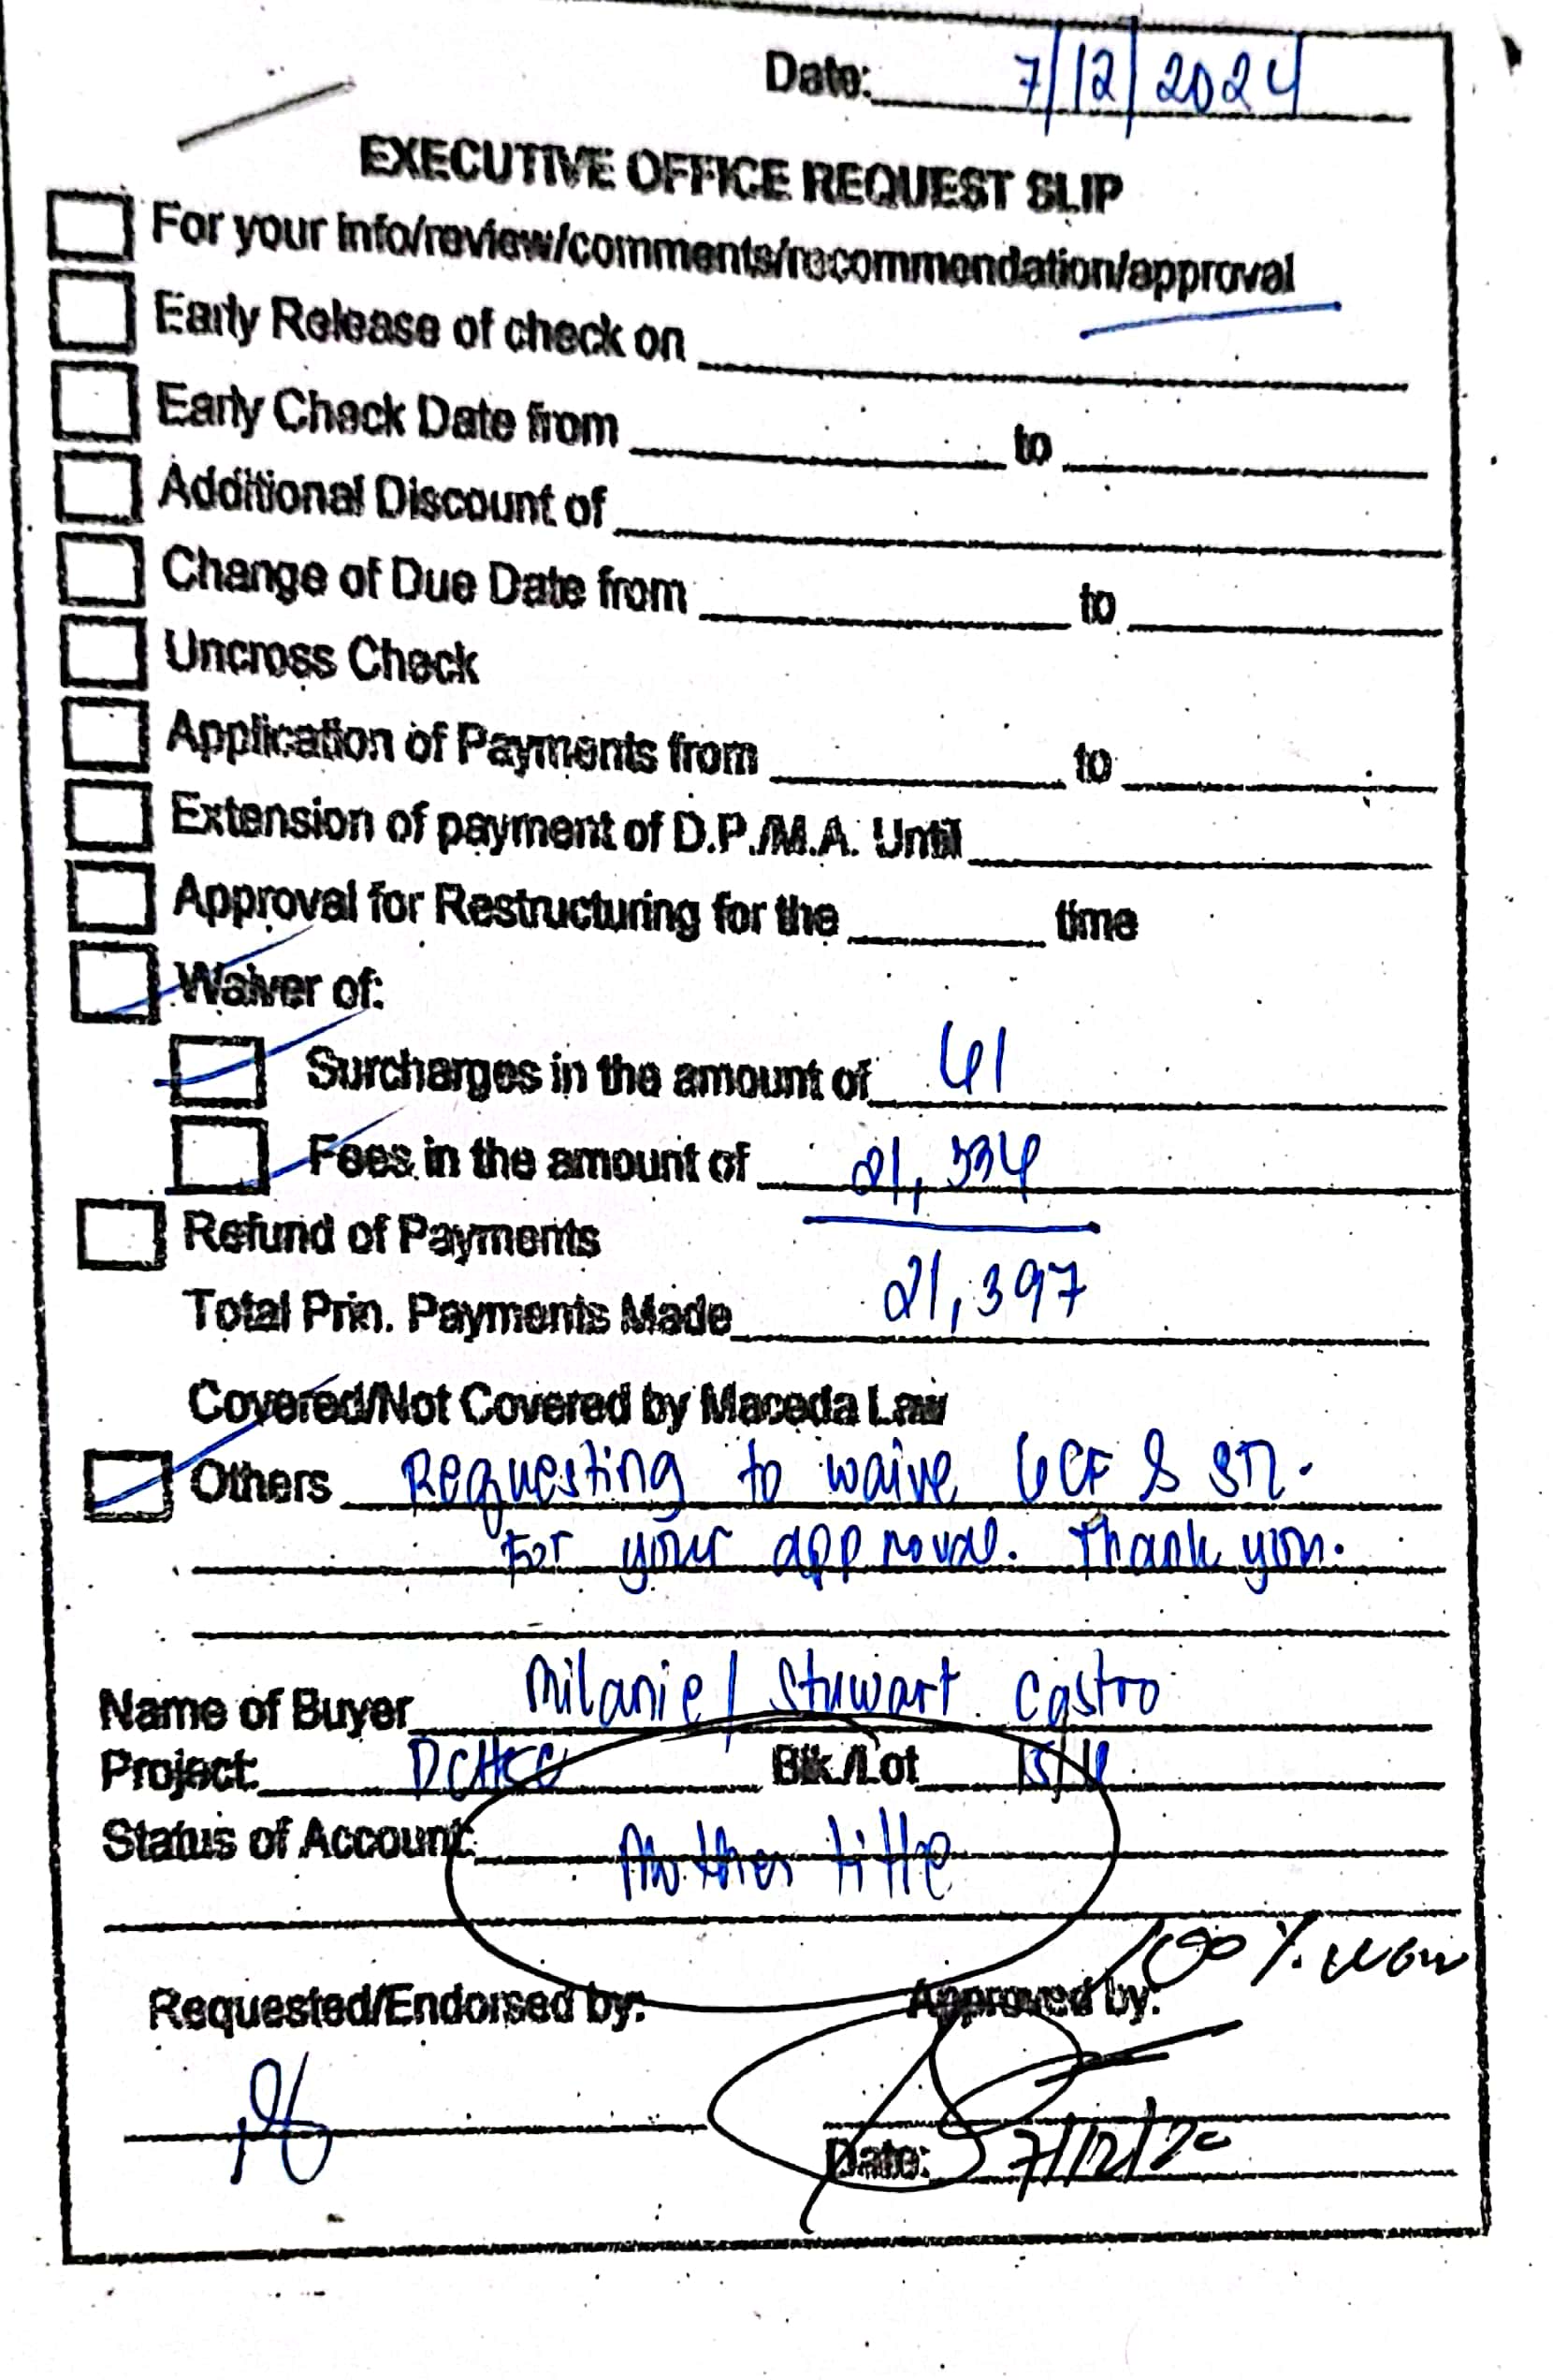 Date: 7/12/2024
EXECUTIVE OFFICE REQUEST SLIP
For your info/review/comments/recommendation/approval
Early Release of check on
Early Check Date from to
Additional Discount of
Change of Due Date from to
Uncross Check
Application of Payments from to
Extension of payment of D.P./M.A. Until
Approval for Restructuring for the time
Waiver of:
Surcharges in the amount of 61
Fees in the amount of 21,336
Refund of Payments 21,397
Total Prin. Payments Made
Covered/Not Covered by Maceda Law
Others Requesting to waive &
For your approval. Thank you.
Name of Buyer Milanie / Stuwart Castro
Project: Blk./Lot
Status of Account: Mother title
100%
Requested/Endorsed by: Approved by:
Date: 7/12/20